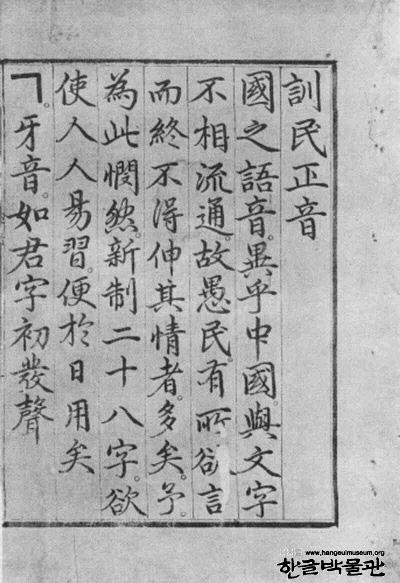 訓民正音
國之語音。異乎中國。與文字
不相流通。故愚民有所欲言
而終不得伸其情者。多矣。予。
為此憫然。新制二十八字。欲
使人人易習。便於日用矣
ㄱ。牙音。如君字初發聲
www.hangeulmuseum.org
한글박물관